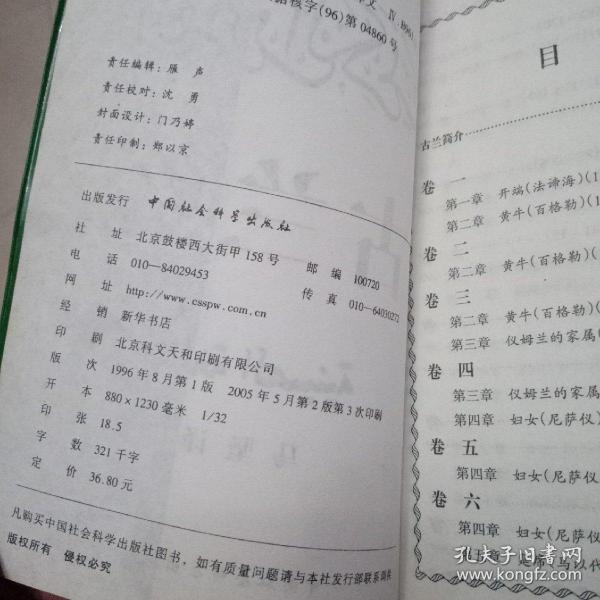 字(96)第 04860 号
责任编辑：雁 声
责任校对：沈 勇
封面设计：门乃婷
责任印制：郑以京
出版发行 中国社会科学出版社
社 址 北京鼓楼西大街甲 158 号 邮 编 100720
电 话 010—84029453 传 真 010—64030272
网 址 http://www.csspw.com.cn
经 销 新华书店
印 刷 北京科文天和印刷有限公司
版 次 1996 年 8 月第 1 版 2005 年 5 月第 2 版第 3 次印刷
开 本 880×1230 毫米 1/32
印 张 18.5
字 数 321 千字
定 价 36.80 元
凡购买中国社会科学出版社图书，如有质量问题请与本社发行部联系调换
版权所有 侵权必究
目
古兰简介
卷 一
第一章 开端(法谛海)(1
第二章 黄牛(百格勒)(1
卷 二
第二章 黄牛(百格勒)(
卷 三
第二章 黄牛(百格勒)(
第三章 仪姆兰的家属
卷 四
第三章 仪姆兰的家属
第四章 妇女(尼萨仪)
卷 五
第四章 妇女(尼萨仪
卷 六
第四章 妇女(尼萨仪
孔夫子旧书网
www.kongfz.com